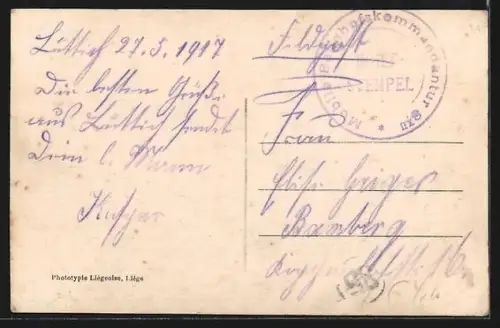 Lüttich 27.5.1917
Die besten Grüße
aus Lüttich sendet
Dein l. Mann
Kaspar
Phototypie Liégeoise, Liége
Feldpost
Mobile Bahnhofskommandantur
STEMPEL
Frau
Elise Geiger
Bamberg